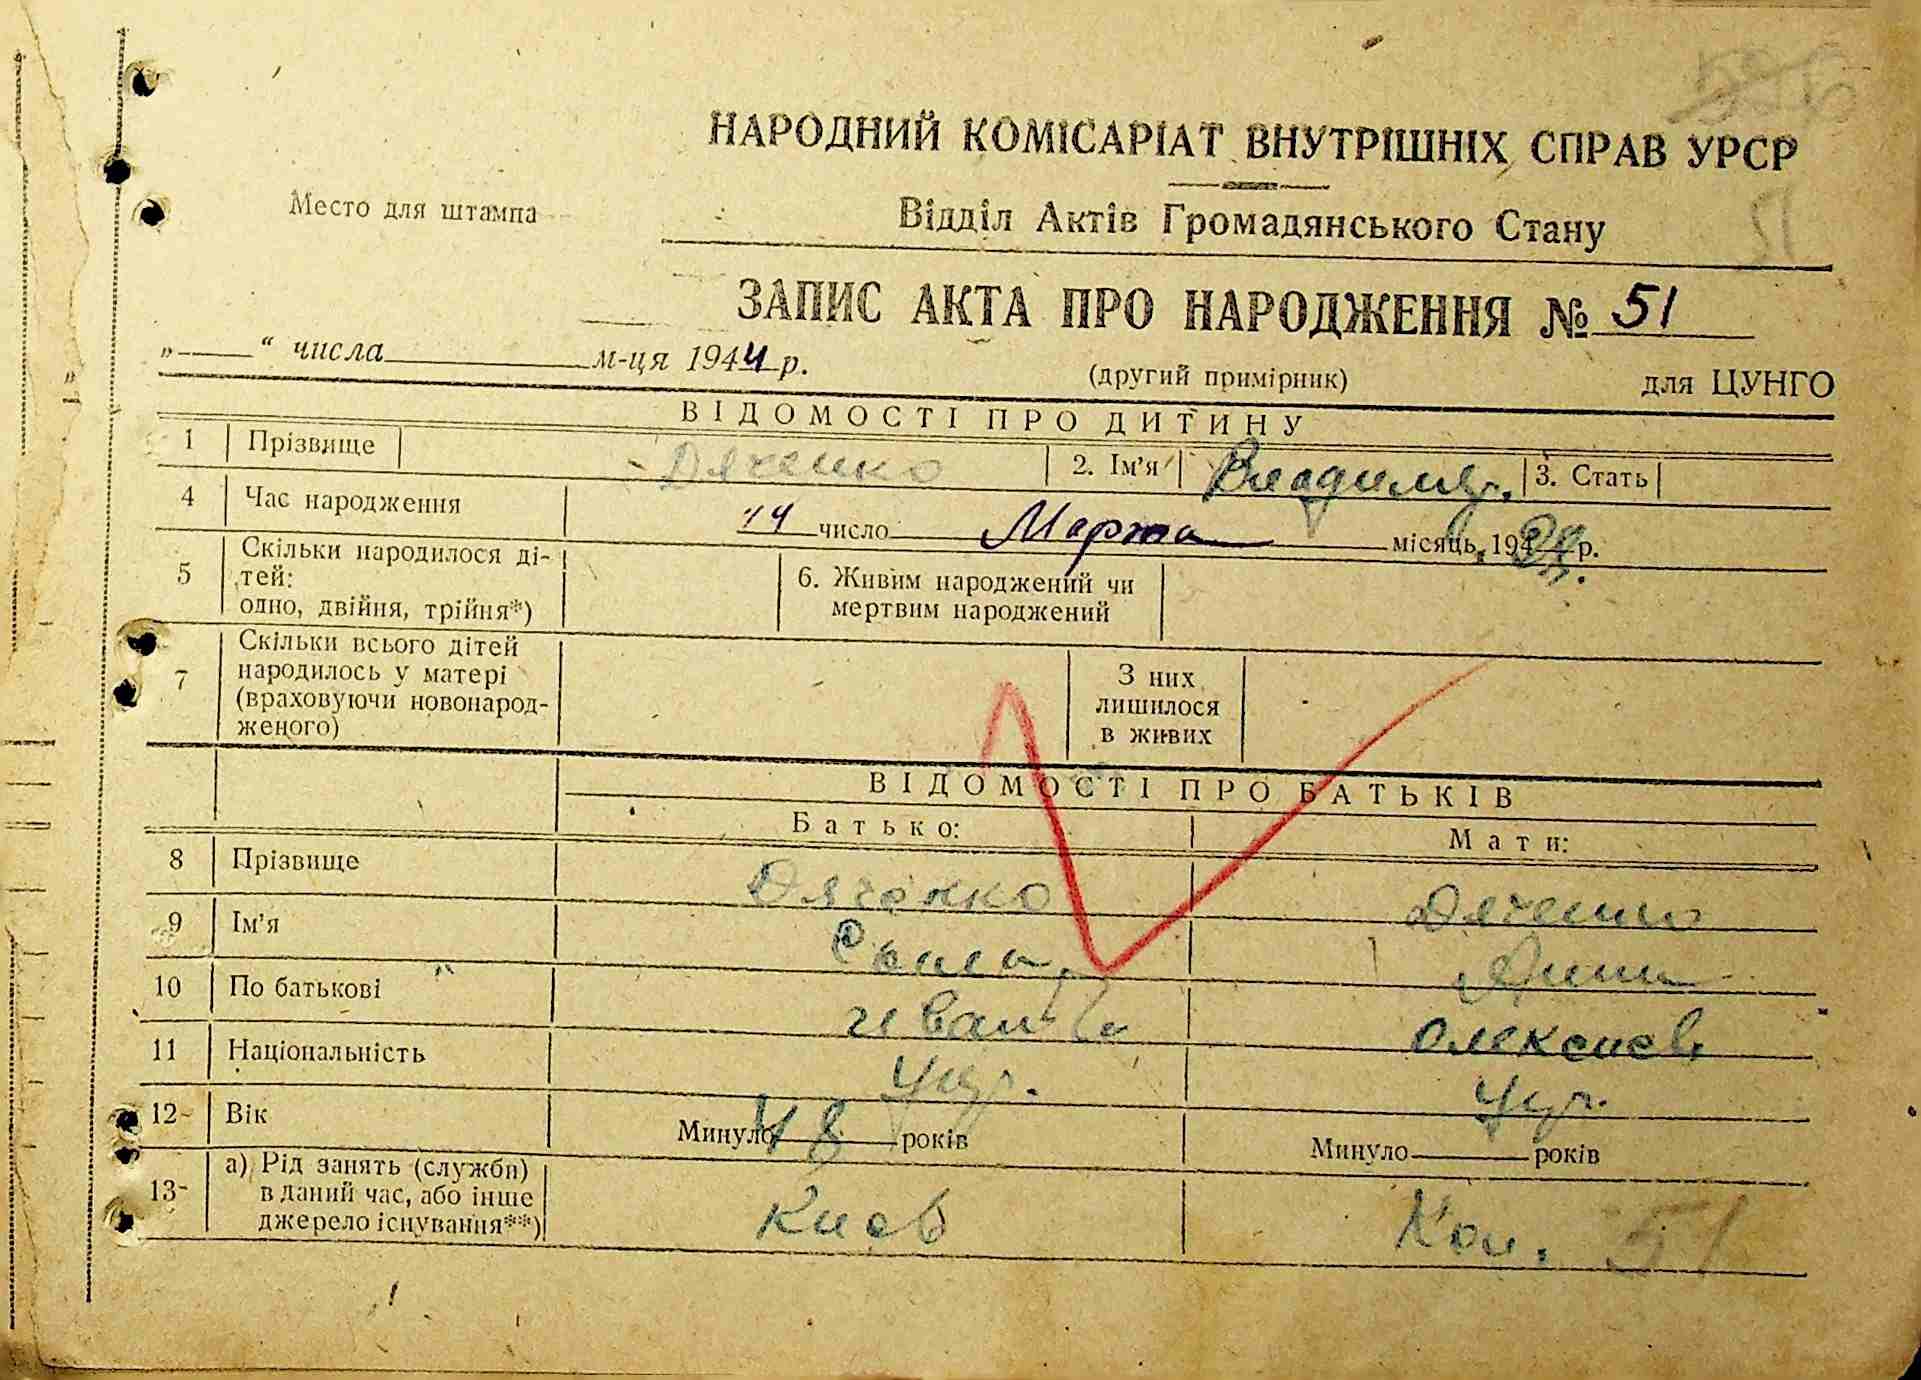 НАРОДНИЙ КОМІСАРІАТ ВНУТРІШНІХ СПРАВ УРСР
Место для штампа
Відділ Актів Громадянського Стану
51
ЗАПИС АКТА ПРО НАРОДЖЕННЯ № 51
„ “ числа м-ця 1944 р.
(другий примірник) для ЦУНГО
ВІДОМОСТІ ПРО ДИТИНУ
1 Прізвище Дяченко 2. Ім'я Владимир. 3. Стать
4 Час народження 14 число Марта місяць, 194 р.
5 Скільки народилося ді-
тей:
одно, двійня, трійня*)
6. Живим народжений чи
мертвим народжений
7 Скільки всього дітей
народилось у матері
(враховуючи новонарод-
женого)
З них
лишилося
в живих
ВІДОМОСТІ ПРО БАТЬКІВ
Батько: Мати:
8 Прізвище Дяченко Дяченко
9 Ім'я
10 По батькові Олексієв
11 Національність Укр. Укр.
12 Вік Минуло 48 років Минуло років
13 а) Рід занять (служби)
в даний час, або інше
джерело існування**)
Киев Кол. 51